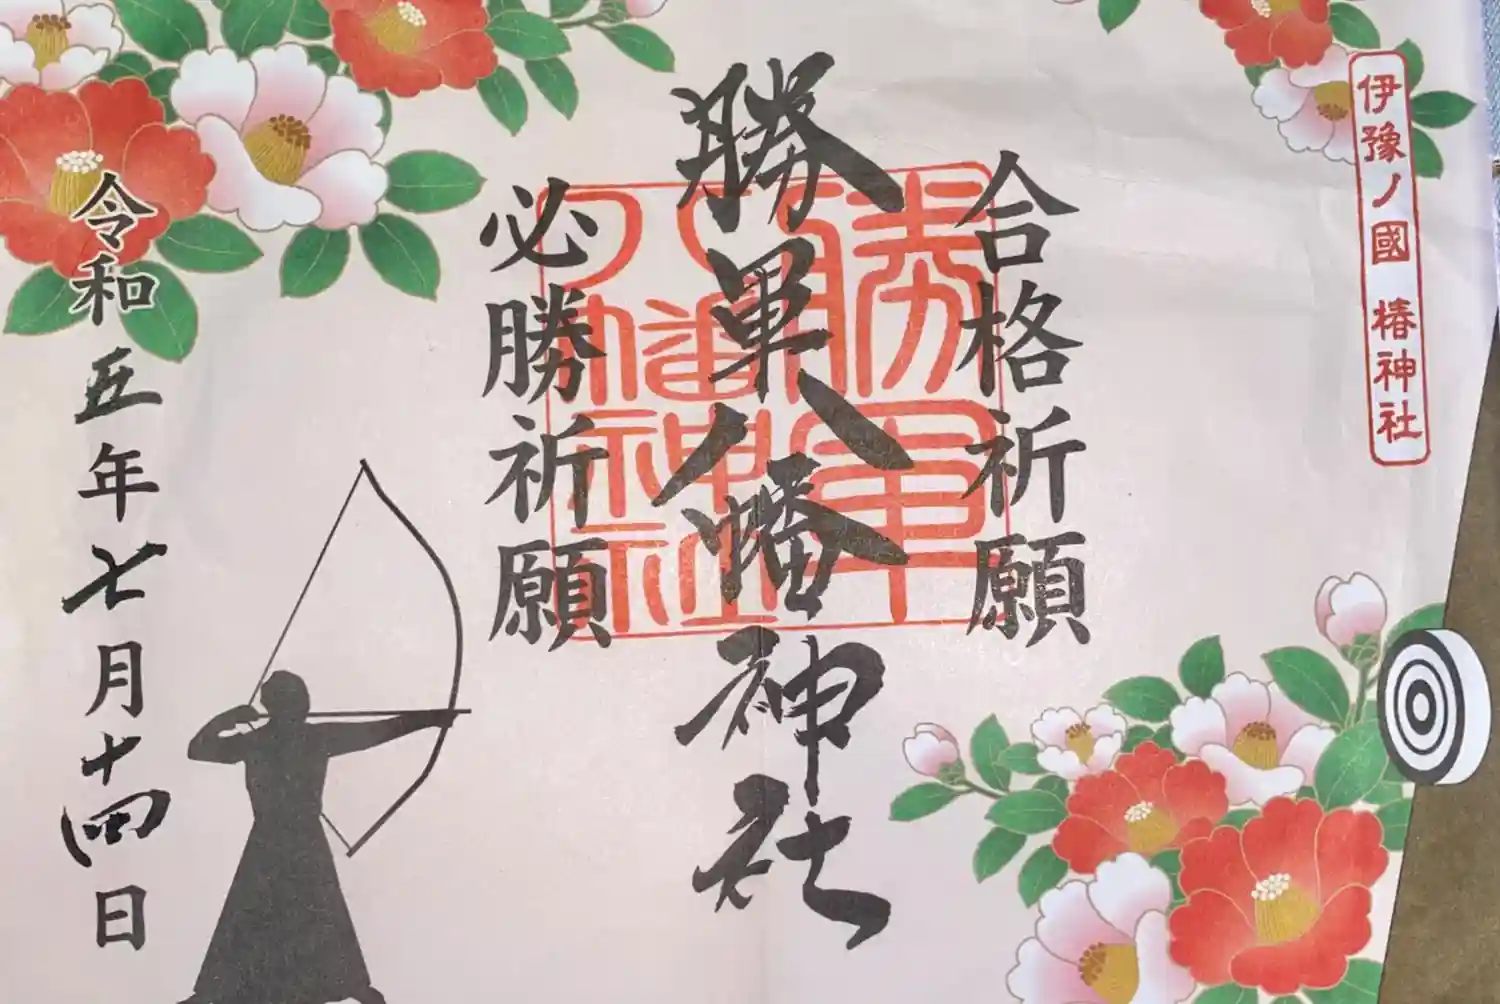 伊豫ノ國 椿神社
合格祈願
勝軍八幡神社
勝軍八幡神社
必勝祈願
令和五年七月十四日